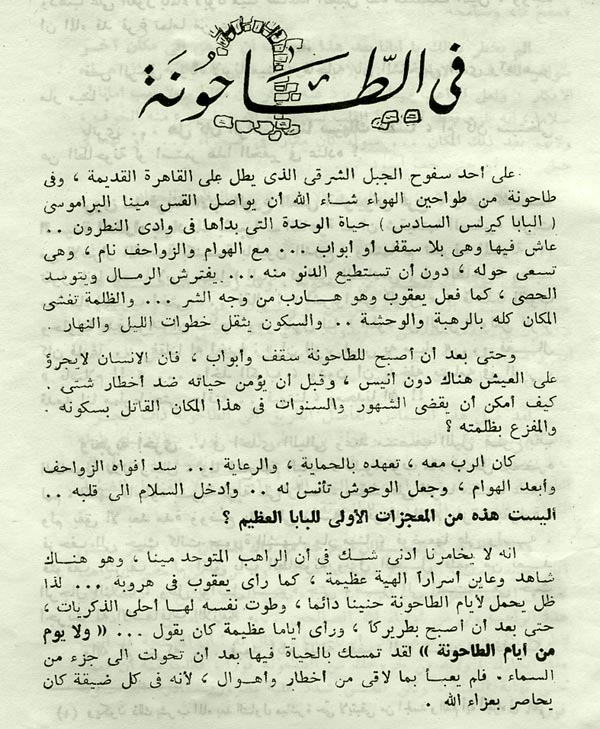 فى الطَّاحُونَة
على أحد سفوح الجبل الشرقى الذى يطل على القاهرة القديمة ، وفى
طاحونة من طواحين الهواء شاء الله أن يواصل القس مينا البراموسى
( البابا كيرلس السادس ) حياة الوحدة التى بدأها فى وادى النطرون ..
عاش فيها وهى بلا سقف أو أبواب ... مع الهوام والزواحف نام ، وهى
تسعى حوله ، دون أن تستطيع الدنو منه ... يفترش الرمال ويتوسد
الحصى ، كما فعل يعقوب وهو هارب من وجه الشر ... والظلمة تغشى
المكان كله بالرهبة والوحشة .. والسكون يثقل خطوات الليل والنهار .
وحتى بعد أن أصبح للطاحونة سقف وأبواب ، فان الانسان لايجرؤ
على العيش هناك دون أنيس ، وقبل أن يؤمن حياته ضد أخطار شتى .
كيف أمكن أن يقضى الشهور والسنوات فى هذا المكان القاتل بسكونه .
والمفزع بظلمته ؟
كان الرب معه ، تعهده بالحماية ، والرعاية ... سد أفواه الزواحف
وأبعد الهوام ، وجعل الوحوش تأنس له .. وأدخل السلام الى قلبه ..
أليست هذه من المعجزات الأولى للبابا العظيم ؟
انه لا يخامرنا أدنى شك فى أن الراهب المتوحد مينا ، وهو هناك
شاهد وعاين أسراراً الهية عظيمة ، كما رأى يعقوب فى هروبه ... لذا
ظل يحمل لأيام الطاحونة حنينا دائما ، وطوت نفسه لها أحلى الذكريات ،
حتى بعد أن أصبح بطريركاً ، ورأى أياما عظيمة كان يقول ... (( ولا يوم
من أيام الطاحونة )) لقد تمسك بالحياة فيها بعد أن تحولت الى جزء من
السماء . فلم يعبأ بما لاقى من أخطار وأهوال ، لأنه فى كل ضيقة كان
يحاصر بعزاء الله .